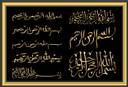 بسم الله الرحمن الرحيم
بسم الله الرحمن الرحيم
بسم الله الرحمن الرحيم
بسم الله الرحمن الرحيم
بسم الله الرحمن الرحيم
بسم الله الرحمن الرحيم
بسم الله الرحمن الرحيم